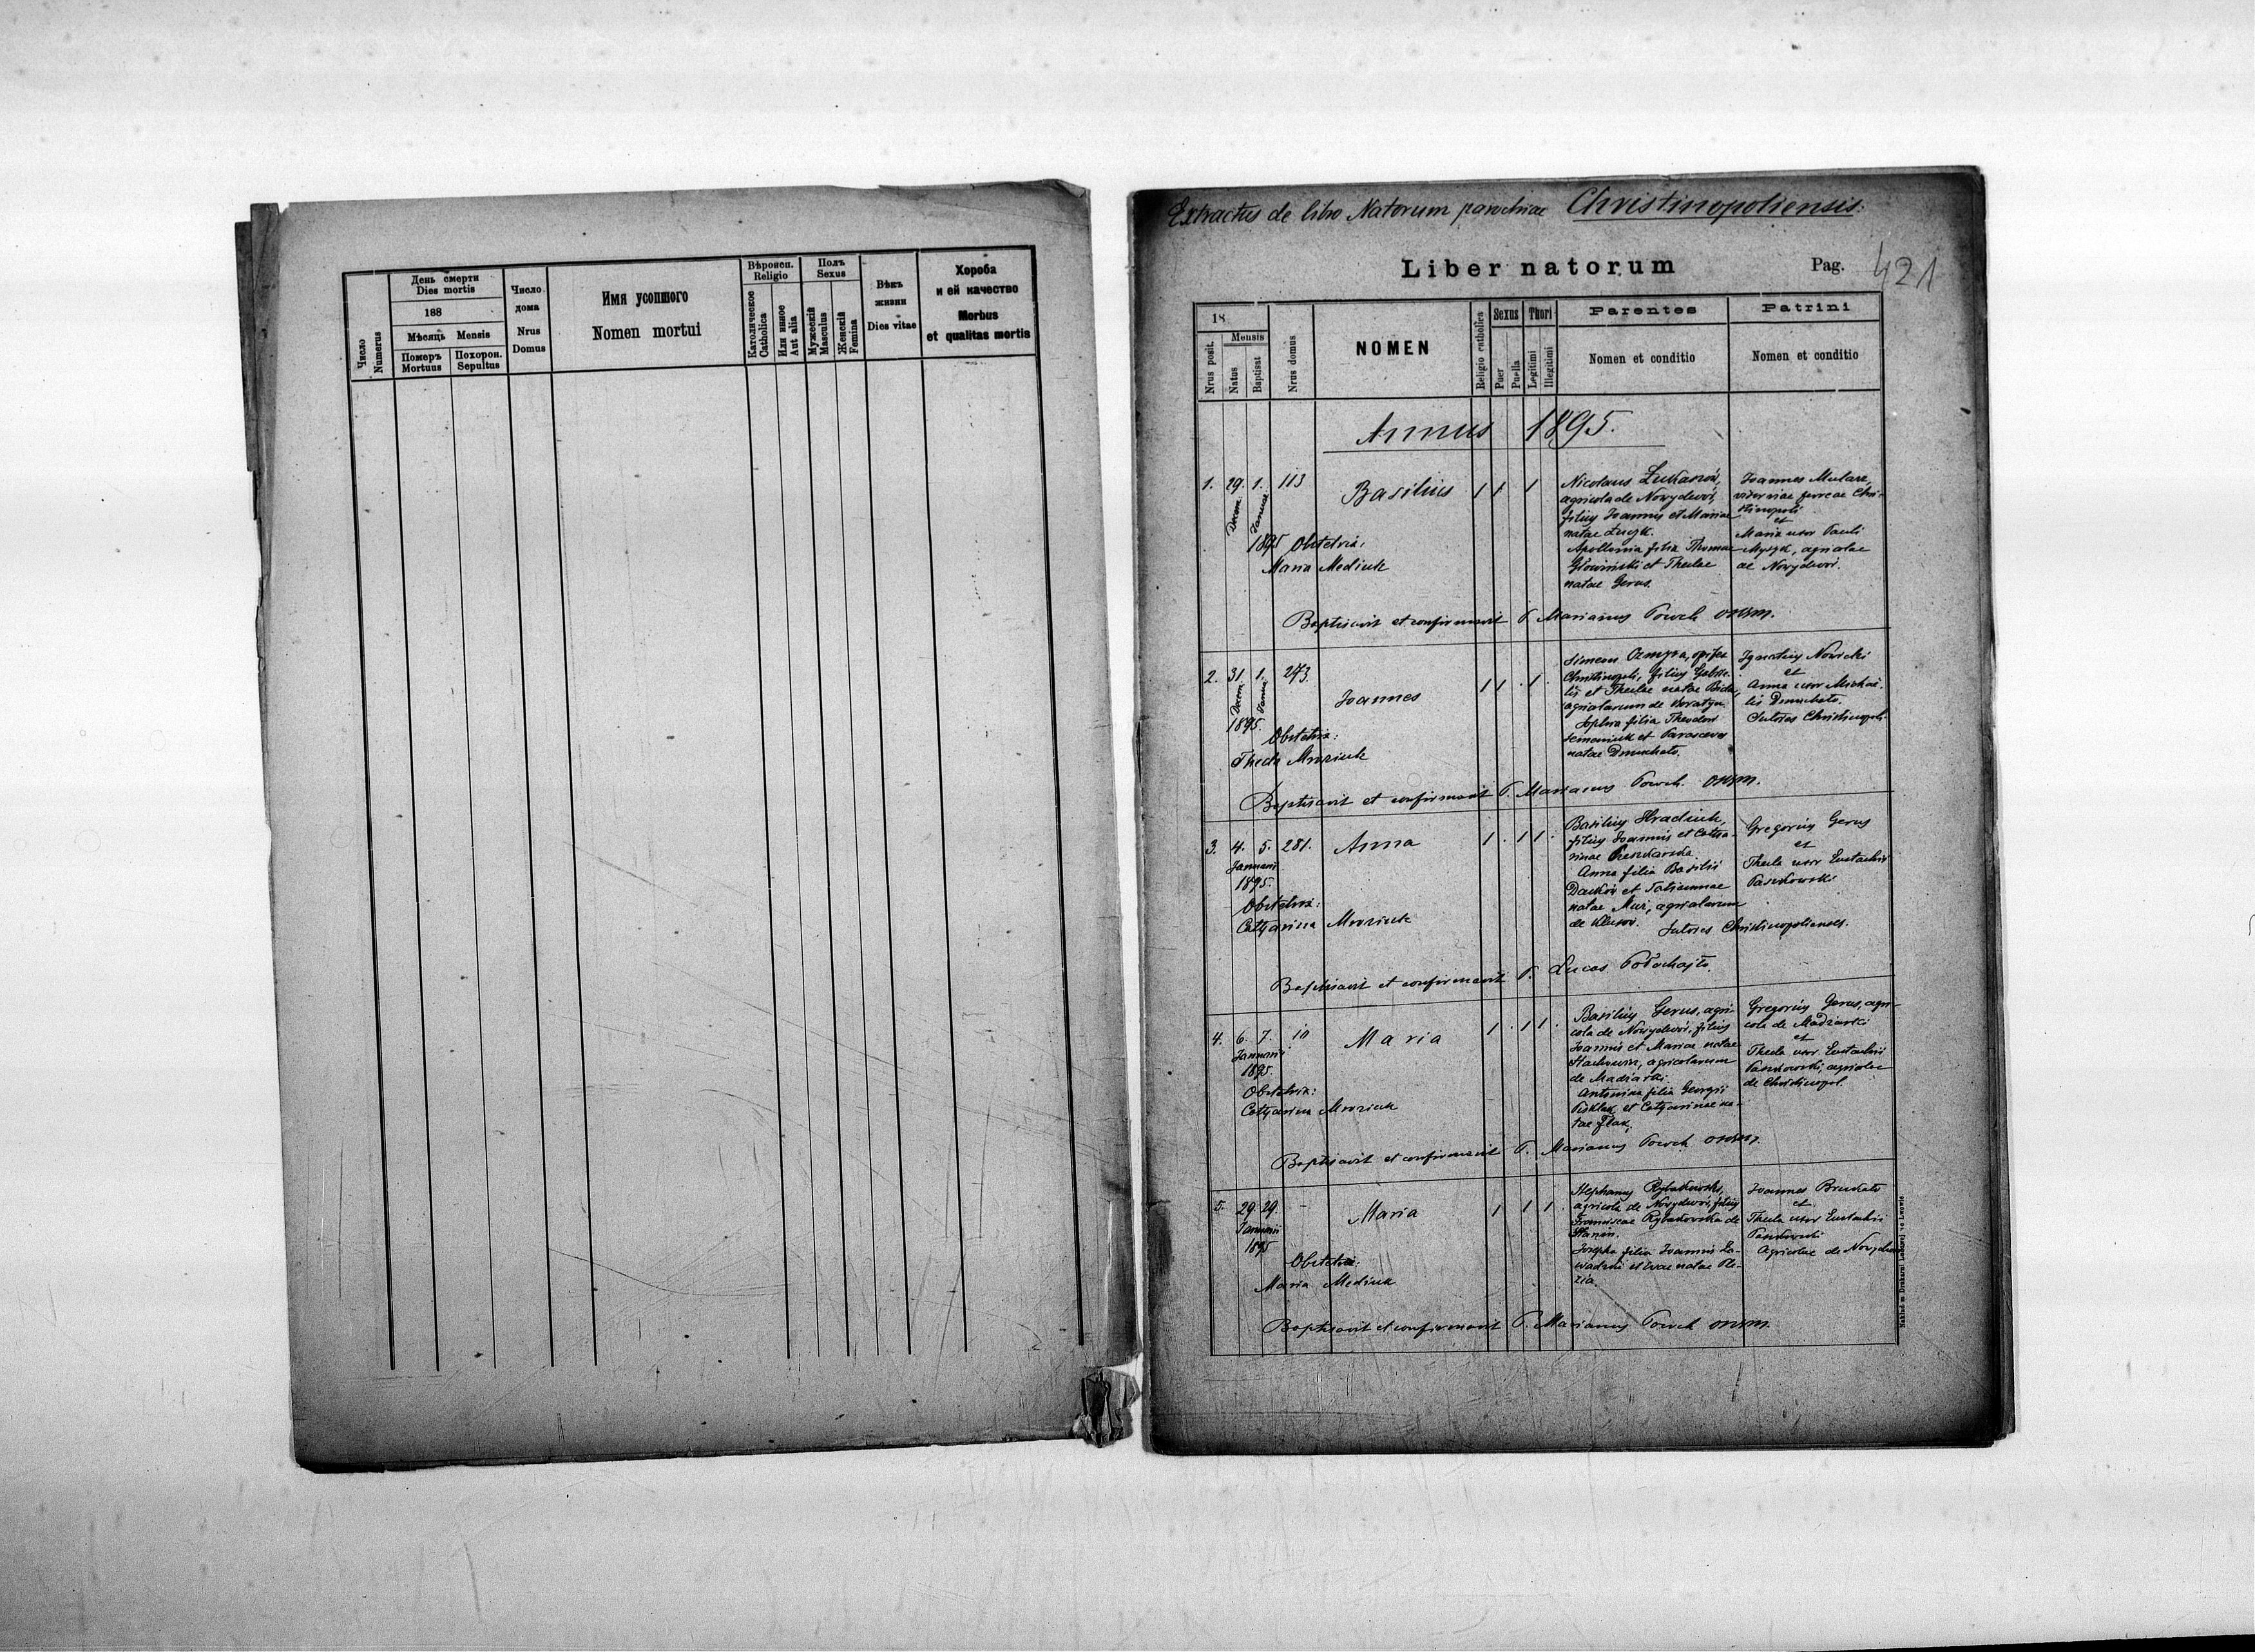 Число
Numerus
День смерти
Dies mortis
188
Мѣсяць Mensis
Померъ
Mortuus
Похорон.
Sepultus
Число
дома
Nrus
Domus
Имя усопшого
Nomen mortui
Вѣроисп.
Religio
Католическое
Catholica
Или инное
Aut alia
Полъ
Sexus
Мужескій
Masculus
Женскій
Femina
Вѣкъ
жизни
Dies vitae
Хороба
и ей качество
Morbus
et qualitas mortis
Extractus de libro Natorum parochiae Christinopoliensis.
Liber natorum
Pag. 421
18
Nrus posit.
Mensis
Natus
Baptisat
Nrus domus
NOMEN
Religio catholica
Sexus
Puer
Puella
Thori
Legitimi
Illegitimi
Parentes
Nomen et conditio
Patrini
Nomen et conditio
Annus 1895.
1. 29. 1. 113 Basilius 1 1 1
Decem. Januar.
1895 Obstetrix:
Maria Mediuk
Nicolaus
agricola de Nowydwór,
filius Joannis et Mariae
natae
Apollonia filia Thomae
Głowiński et Theclae
natae Gerus.
Joannes Mularz,
viae ferreae Chri-
stinopoli
et
Maria uxor Pauli
agricolae
de Nowydwór.
Baptisavit et confirmavit P. Marianus Powch OSBM.
2. 31. 1. 273. Joannes 1 1 . 1 .
Decem. Januar.
1895.
Obstetrix:
Thecla Mroziuk
Simeon opifex
Christinopoli, filius Gabrie-
lis et Theclae natae
agricolarum de
Sophia filia Theodori
Semeniuk et Parascevae
natae Dmuchata.
Ignatius Nowicki
et
Anna uxor Michae-
lis Dmuchato.
Sutores Christinopoli.
Baptisavit et confirmavit P. Marianus Powch OSBM.
3. 4. 5. 281. Anna 1 . 1 1 .
Januarii
1895.
Obstetrix:
Catharina Mroziuk
Basilius Hradiuk,
filius Joannis et Catha-
rinae
Anna filia Basilii
et Tatiannae
natae Mur, agricolarum
de Klusow.
Gregorius Gerus
et
Thecla uxor Eustachii
Paszkowski
Sutores Christinopolienses.
Baptisavit et confirmavit P. Lucas
4. 6. 7. 10 Maria 1 . 1 1 .
Januarii
1895.
Obstetrix:
Catharina Mroziuk
Basilius Gerus, agri-
cola de Nowydwór, filius
Joannis et Mariae natae
agricolarum
de Madziarki.
Antonina filia Georgii
et Catharinae na-
tae
Gregorius Gerus, agri-
cola de Madziarki
et
Thecla uxor Eustachii
Paszkowski, agricolae
de Christinopol.
Baptisavit et confirmavit P. Marianus Powch OSBM.
5. 29. 29. – Maria 1 1 1 .
Januarii
1895
Obstetrix:
Maria Mediuk
Stephanus Rybakowski,
agricola de Nowydwór, filius
Franciscae Rybakowska de
Josepha filia Joannis Za-
wadzki et Evae natae
Joannes
et
Thecla uxor Eustachii
Paszkowski
Agricolae de Nowydwór
Baptisavit et confirmavit P. Marianus Powch OSBM.